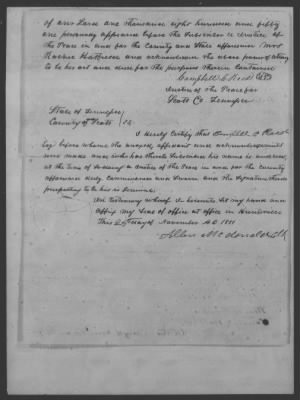 of our Lord one thousand eight hundred and fifty
one personally appeared before the subscriber a Justice of
the Peace in and for the County and State aforesaid Mrs
Rachel and acknowledged the above power of atty
to be her act and deed for the purpose therein contained
Campbell C Reed
Justice of the Peace for
Scott Co Tennessee
State of Tennessee
County of Scott
I hereby Certify that Campbell C Reed
Esq before whom the above affidavit and acknowledgments
was made and who has thereto subscribed his name is and was
at the time of so doing a Justice of the Peace in and for the County
aforesaid duly Commissioned and sworn and the signature thereto
purporting to be his is Genuine
In testimony whereof I hereunto set my hand and
affix my Seal of office at office in Huntsville
This day of November A.D. 1851
Allen McDonald Clk